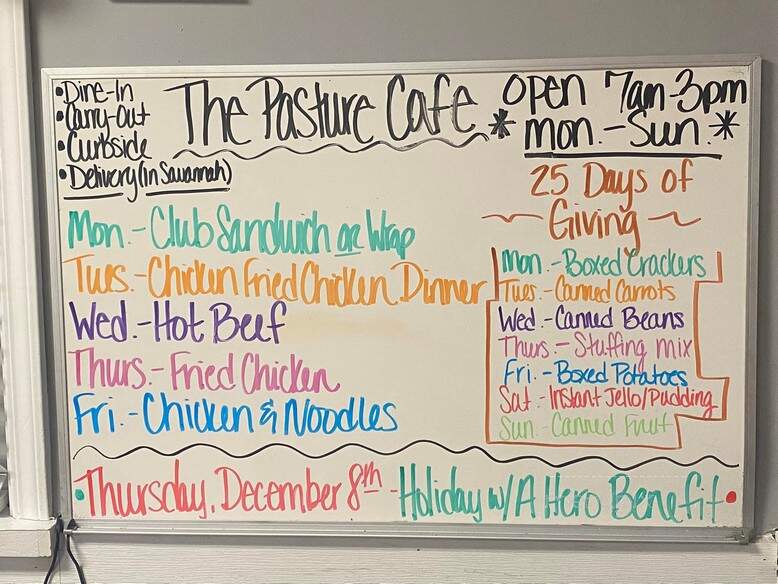 •Dine-In
•Carry-Out
•Curbside
•Delivery (in Savannah)
The Pasture Cafe
open 7am-3pm
*mon.-Sun.*
Mon.-Club Sandwich or Wrap
Tues.-Chicken Fried Chicken Dinner
Wed.-Hot Beef
Thurs.-Fried Chicken
Fri.-Chicken & Noodles
25 Days of
~Giving~
Mon.-Boxed Crackers
Tues.-Canned Carrots
Wed.-Canned Beans
Thurs.-Stuffing mix
Fri.-Boxed Potatoes
Sat.-Instant Jello/Pudding
Sun-Canned Fruit
•Thursday, December 8th-Holiday w/A Hero Benefit•